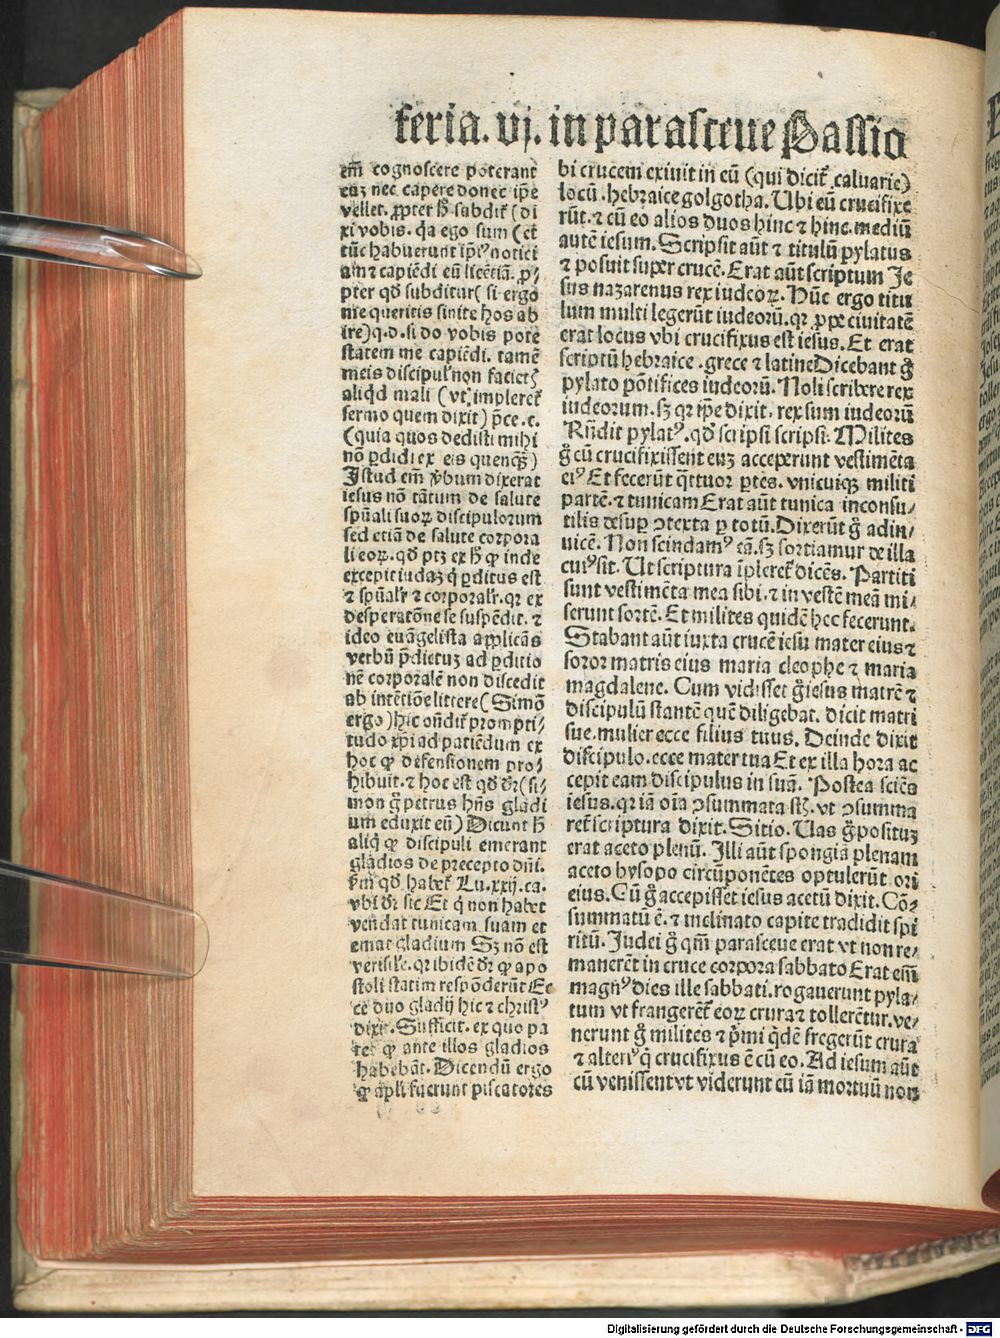 feria. vj. in parasceue Passio
em̄ cognoscere poterant
euʒ nec capere donec ip̄e
vellet. ꝓpter h̄ subdit̄ (di
xi vobis. q̄a ego sum (et
tūc habuerunt ip̄iꝰ notici
am ⁊ capiēdi eū licētiā. ꝓ⸗
pter qd̄ subditur (si ergo
me queritis sinite hos ab
ire) q.d. si do vobis pote
statem me capiēdi. tamē
meis discipul̓ non faciet꭛
aliqd̓ mali (vt impleret̄
sermo quem dixit) p̄ce. c.
(quia quos dedisti mihi
nō ꝑdidi ex eis quenqꝫ̄)
Istud em̄ v̄bum dixerat
iesus nō tātum de salute
spūali suoꝝ discipulorum
sed etiā de salute corpora
li eoꝝ. qd̄ ptʒ ex h̄ ꝙ inde
excepit iudaʒ q̇ ꝑditus est
⁊ spūal̓r ⁊ corporal̓r. qr ex
desperatōne se suspēdit. ⁊
ideo euāgelista applicās
verbū p̄dictuʒ ad ꝑditio
nē corporalē non discedit
ab intētiōe littere (Simō
ergo) hic oñdit̄ prompti⸗
tudo xp̄i ad patiēdum ex
hoc ꝙ defensionem pro⸗
hibuit. ⁊ hoc est qd̄ dr̄ (si⸗
mon g̊ petrus hn̄s gladi
um eduxit eū) Dicunt h̄
aliq̇ ꝙ discipuli emerant
gladios de precepto dn̄i.
fm̄ qd̄ habet̄ Lu. xxij. ca.
vbi dr̄ sic Et q̇ non habet
vendat tunicam suam et
emat gladium Sʒ nō est
verisil̓e. qr ibidē dr̄ ꝙ apo
stoli statim respōderūt Ec
ce duo gladij hic ⁊ christꝰ
dixit. Sufficit. ex quo pa
tet ꝙ ante illos gladios
habebāt. Dicendū ergo
ꝙ apl̄i fuerunt piscatores
bi crucem exiuit in eū (qui dicit̄ caluarie)
locū. hebraice golgotha. Ubi eū crucifixe
rūt. ⁊ cū eo alios duos hinc ⁊ hinc. mediū
autē iesum. Scripsit aūt ⁊ titulū pylatus
⁊ posuit super crucē. Erat aūt scriptum Je
sus nazarenus rex iudeoꝝ. Hūc ergo titu
lum multi legerūt iudeorū. qr ꝓpe ciuitatē
erat locus vbi crucifixus est iesus. Et erat
scriptū hebraice. grece ⁊ latine Dicebant g̊
pylato pōtifices iudeorū. Noli scribere rex
iudeorum. sʒ qr ip̄e dixit. rex sum iudeorū
Rn̄dit pylatꝰ. qd̄ scripsi scripsi. Milites
g̊ cū crucifixissent euʒ acceperunt vestimēta
eiꝰ Et fecerūt q̄ttuor ꝑtes. vnicuiqꝫ militi
partē. ⁊ tunicam Erat aūt tunica inconsu⸗
tilis desuꝑ ꝯtexta ꝑ totū. Dixerūt g̊ adin⸗
uicē. Non scindamꝰ eā. sʒ sortiamur de illa
cuiꝰ sit. Ut scriptura īpleret̄ dicēs. Partiti
sunt vestimēta mea sibi. ⁊ in vestē meā mi⸗
serunt sortē. Et milites quidē hec fecerunt.
Stabant aūt iuxta crucē iesu mater eius ⁊
soror matris eius maria cleophe ⁊ maria
magdalene. Cum vidisset g̊ iesus matrē ⁊
discipulū stantē quē diligebat. dicit matri
sue. mulier ecce filius tuus. Deinde dixit
discipulo. ecce mater tua Et ex illa hora ac
cepit eam discipulus in suā. Postea sciēs
iesus. qr iā oīa ꝯsummata sūt. vt ꝯsumma
ret̄ scriptura dixit. Sitio. Uas g̊ posituʒ
erat aceto plenū. Illi aūt spongiā plenam
aceto hysopo circūponētes optulerūt ori
eius. Cū g̊ accepisset iesus acetū dixit. Cō⸗
summatū ē. ⁊ inclinato capite tradidit spi
ritū. Judei g̊ qm̄ parasceue erat vt non re⸗
manerēt in cruce corpora sabbato Erat em̄
magnꝰ dies ille sabbati. rogauerunt pyla⸗
tum vt frangerēt̄ eoꝝ crura ⁊ tollerētur. ve⸗
nerunt g̊ milites ⁊ p̄mi q̇dē fregerūt crura
⁊ alteriꝰ q̇ crucifixus ē cū eo. Ad iesum aūt
cū venissent vt viderunt eū iā mortuū non
Digitalisierung gefördert durch die Deutsche Forschungsgemeinschaft - DFG